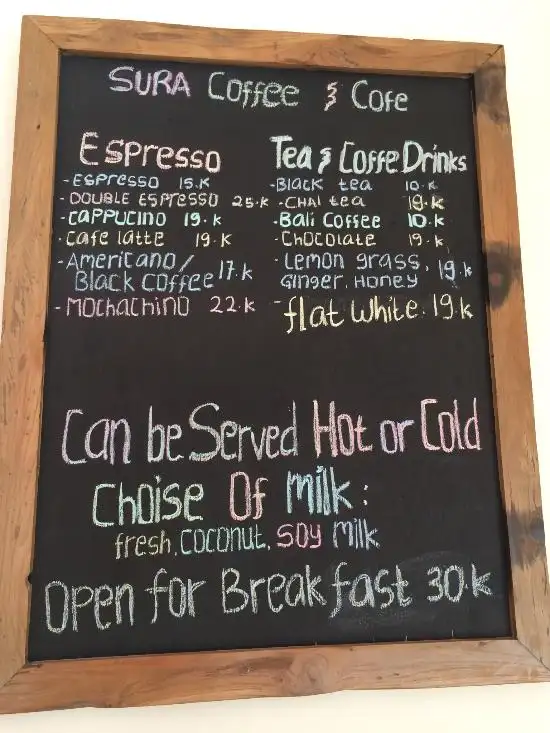 SURA Coffee & Cofe
Espresso
- ESPRESSO 15.K
- DOUBLE ESPRESSO 25.K
- CAPPUCINO 19.K
- Cafe latte 19.K
- Americano/
Black Coffee 17.K
- Mochachino 22.K
Tea & Coffe Drinks
- Black tea 10.K
- CHAI tea 19.K
- Bali Coffee 10.K
- Chocolate 19.K
- Lemon grass,
Ginger, Honey 19.K
- flat White. 19.K
Can be Served Hot or Cold
Choise Of Milk :
fresh, Coconut, Soy Milk
Open for Breakfast 30.K